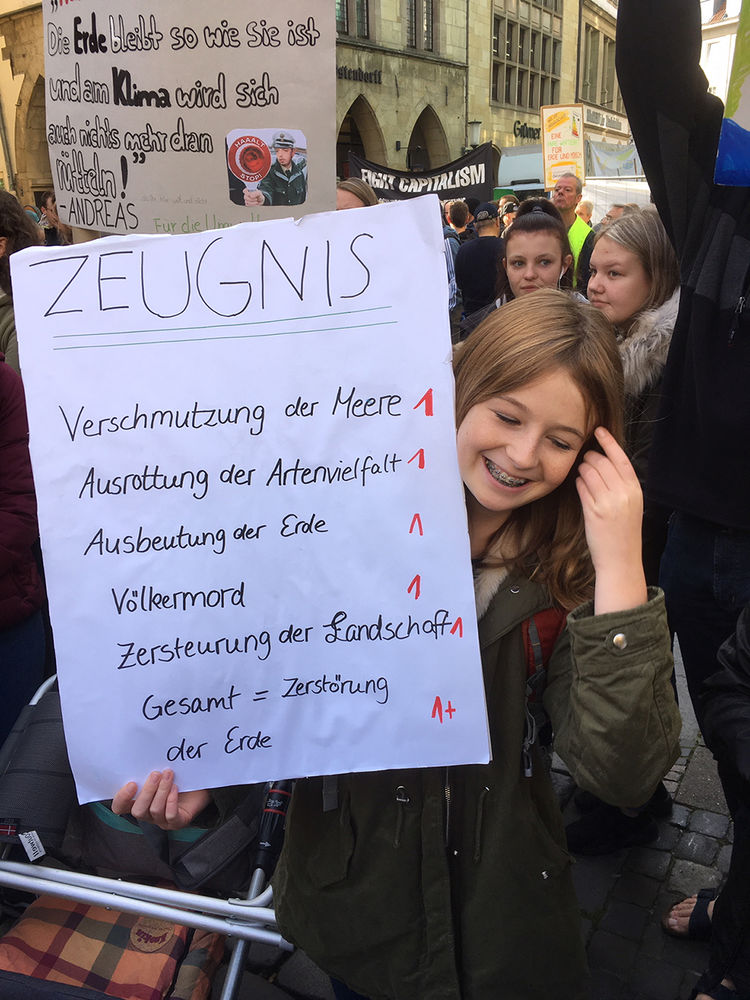 Die Erde bleibt so wie sie ist
und am Klima wird sich
auch nichts mehr dran
rütteln!"
-ANDREAS
HAAALT
STOP!
Für die Um
FIGHT CAPITALISM
ZEUGNIS
Verschmutzung der Meere 1
Ausrottung der Artenvielfalt 1
Ausbeutung der Erde 1
Völkermord 1
Zersteurung der Landschaft 1
Gesamt = Zerstörung 1+
der Erde